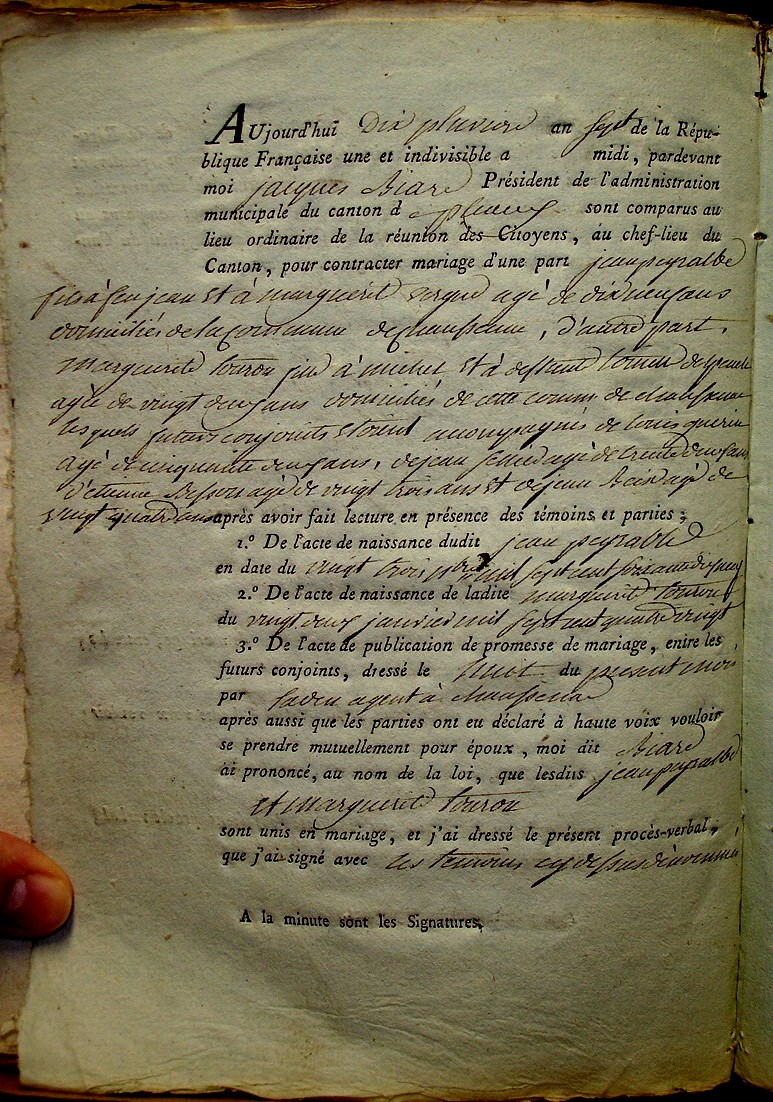 AUjourd'hui Dix pluviose an sept de la Répu-
blique Française une et indivisible a midi, pardevant
moi jacques Biard Président de l'administration
municipale du canton d sont comparus au
lieu ordinaire de la réunion des Citoyens, au chef-lieu du
Canton, pour contracter mariage d'une part jean peyralbe
fils à feu jean et à marguerit agé de dix neuf ans
domiciliés de la Commune de chaussenac, d'autre part,
marguerite touron fille à michel et à
agée de vingt deux ans domiciliés de cette comm. de chaussenac
lesquels futurs conjoints etoient accompagnés de louis guerin
agé de cinquante deux ans, de jean agé de trente deux ans
d'etienne agé de vingt trois ans et de jean agé de
vingt quatre ans après avoir fait lecture en présence des témoins et parties ;
1.º De l'acte de naissance dudit jean peyralbe
en date du vingt trois mil sept cent soixante dix neuf
2.º De l'acte de naissance de ladite marguerite touron
du vingt deux janvier mil sept cent quatre vingt
3.º De l'acte de publication de promesse de mariage, entre les
futurs conjoints, dressé le huit du present mois
par agent à chaussenac
après aussi que les parties ont eu déclaré à haute voix vouloir
se prendre mutuellement pour époux, moi dit Biard
ai prononcé, au nom de la loi, que lesdits jean peyralbe
et marguerite touron
sont unis en mariage, et j'ai dressé le présent procès-verbal,
que j'ai signé avec les temoins cy dessus denommés
A la minute sont les Signatures.